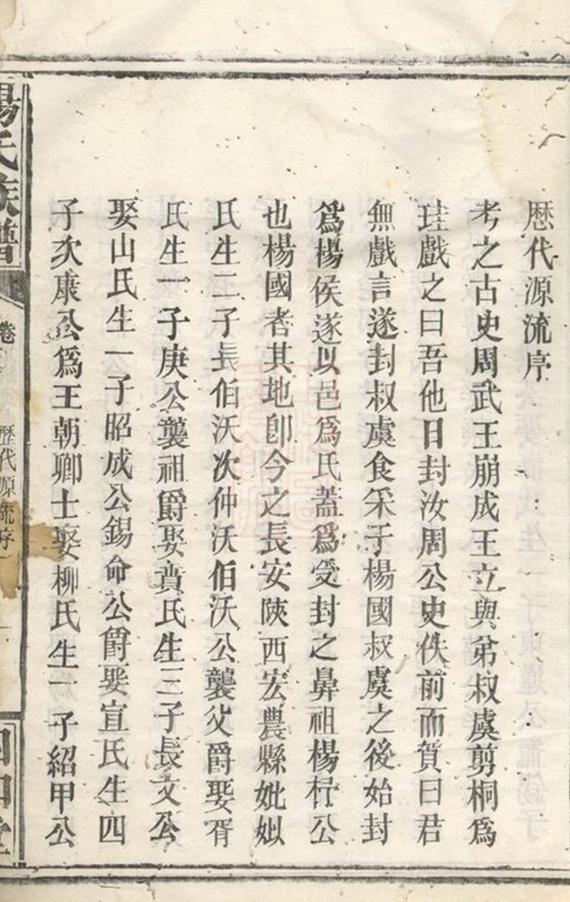 歷代源流序
考之古史周武王崩成王立與弟叔虞剪桐為
珪戲之曰吾他日封汝周公史佚前而賀曰君
無戲言遂封叔虞食采于楊國叔虞之後始封
為楊侯遂以邑為氏蓋為受封之鼻祖楊杼公
也楊國者其地卽今之長安陝西宏農縣妣姒
氏生二子長伯沃次仲沃伯沃公襲父爵娶胥
氏生一子庚公襲祖爵娶黄氏生三子長文公
娶山氏生一子昭成公錫命公爵娶宣氏生四
子次康公為王朝卿士娶柳氏生一子紹甲公
楊氏族譜
卷
歷代源流序
一
四知堂